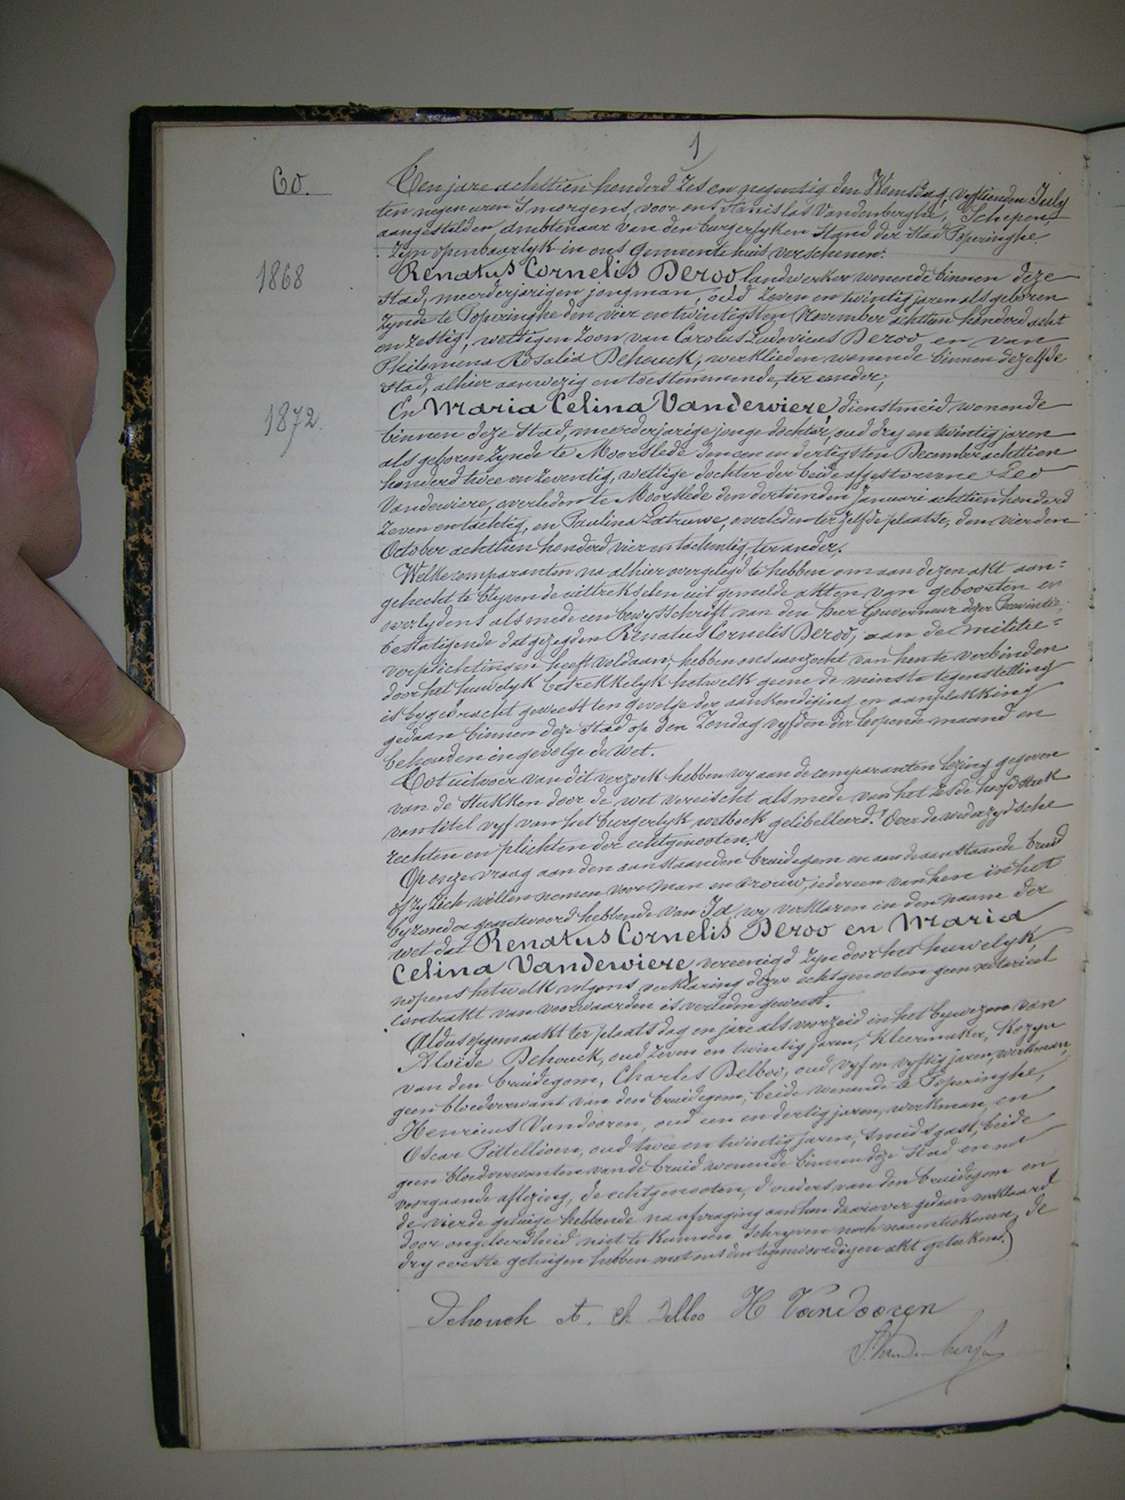 1
60.
Ten jare achttien honderd zes en negentig den Woensdag, vyftienden July
ten negen uren 's morgens, voor ons Stanislas Vandenberghe, Schepen,
aangestelden ambtenaar van den burgerlyken stand der stad Poperinghe
zyn openbaarlyk in ons gemeentehuis verschenen:
1868
Renatus Cornelis Deroo, landwerker wonende binnen deze
stad, meerderjarigen jongman, oud zeven en twintig jaren als geboren
zynde te Poperinghe den vier en twintigsten November achttien honderd acht
en zestig, wettigen zoon van Carolus Ludovicus Deroo en van
Philomena Rosalia Dehouck, werklieden wonende binnen dezelfde
stad, alhier aanwezig en toestemmende, ter eender;
1872.
En Maria Celina Vandewiere, dienstmeid wonende
binnen deze stad, meerderjarige jonge dochter, oud dry en twintig jaren
als geboren zynde te Moorslede den een en dertigsten December achttien
honderd twee en zeventig, wettige dochter der beide afgestorvene Leo
Vandewiere, overleden te Moorslede den dertienden Januari achttien honderd
zeven en tachtig, en Paulina Latruwe, overleden ter zelfde plaatse, den vierden
October achttien honderd vier en tachentig, ter ander.
Welke comparanten na alhier overgelegd te hebben om aan dezen akt aan=
gehecht te blyven de uittreksels uit gemelde akten van geboorten en
overlydens als mede een bewysschrift van den heer Gouverneur dezer Provintie,
bestatigende dat gezegden Renatus Cornelis Deroo, aan de militie=
verplichtingen heeft voldaan, hebben ons aanzocht van hen te verbinden
door het huwelyk betrekkelyk hetwelk geene de minste tegenstelling
is bygebracht geweest ten gevolge der aankondiging en aanplakking
gedaan binnen deze stad op den Zondag vyfden der loopende maand en
behouden in gevolge de wet.
Tot uitvoer van dit verzoek hebben wy aan de comparanten lezing gegeven
van de stukken door de wet vereischt als mede van het zesde hoofdstuk
van titel vyf van het burgerlyk wetboek gelibelleerd: "Over de wederzydsche
rechten en plichten der echtgenooten."
Op onze vraag aan den aanstaanden bruidegom en aan de aanstaande bruid
of zy zich willen nemen voor man en vrouw, iedereen van hen in het
byzonder geantwoord hebbende van Ja, wy verklaren in den naam der
wet dat Renatus Cornelis Deroo en Maria
Celina Vandewiere, vereenigd zyn door het huwelyk,
nopens hetwelk volgens verklaring dezer echtgenooten geen notarieel
contrakt van voorwaarden is verleden geweest.
Aldus opgemaakt ter plaats dag en jare als voorzeid in het bywezen van
Aloïse Dehouck, oud zeven en twintig jaren, kleermaker, kozyn
van den bruidegom, Charles Delboo, oud vyf en vyftig jaren, werkman,
geen bloedverwant van den bruidegom, beide wonende te Poperinghe,
Henricus Vandooren, oud een en dertig jaren, werkman, en
Oscar oud twee en twintig jaren, smidsgast, beide
geen bloedverwanten van de bruid wonende binnen deze stad en met
voorgaande aflezing, de echtgenooten, d'ouders van den bruidegom en
de vierde getuige hebbende na afvraging aan hun daarover gedaan verklaard
door ongeleerdheid niet te kunnen schryven noch naamteekenen, de
dry eerste getuigen hebben met ons den tegenwoordigen akt geteekend.
Dehouck A. Ch Delboo H Vandooren
S. Vandenberghe